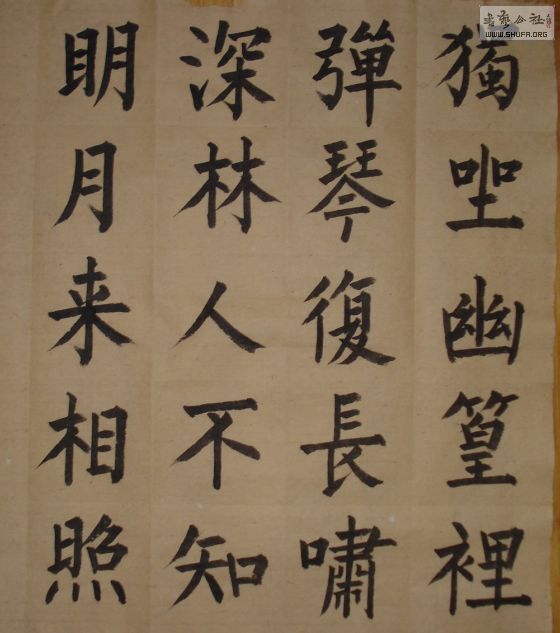 獨坐幽篁裡
彈琴復長嘯
深林人不知
明月来相照
书艺公社
WWW.SHUFA.ORG